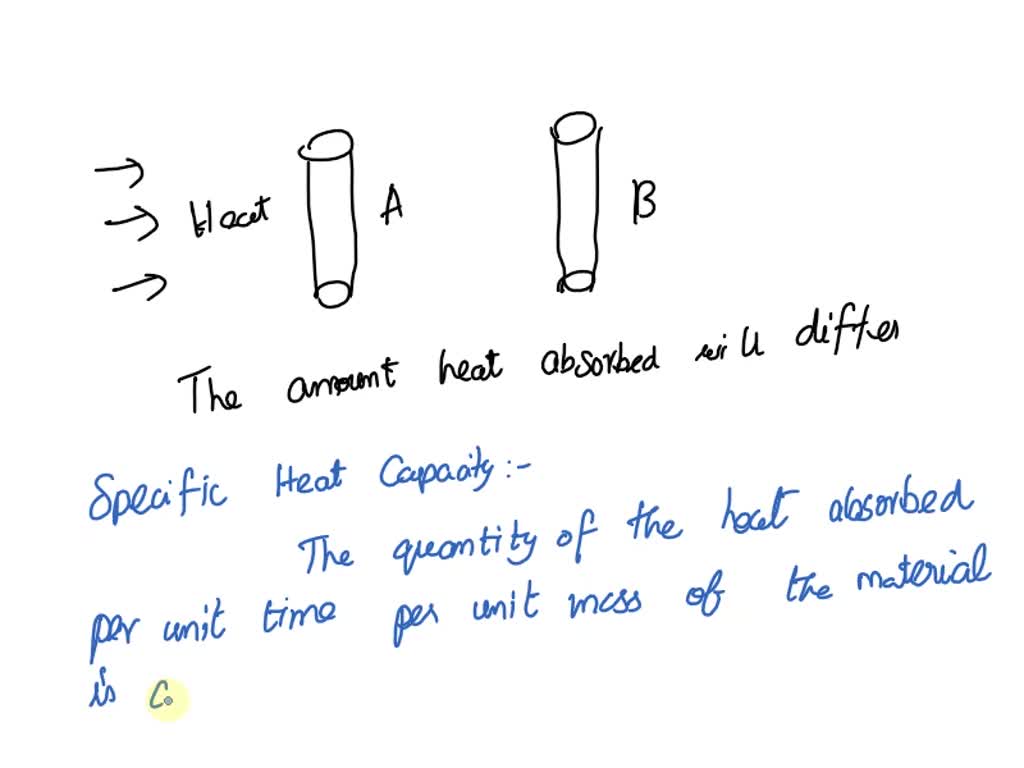 Heat A B
The amount heat absorbed will differ
Specific Heat Capacity:-
The quantity of the heat absorbed
per unit time per unit mass of the material
is c